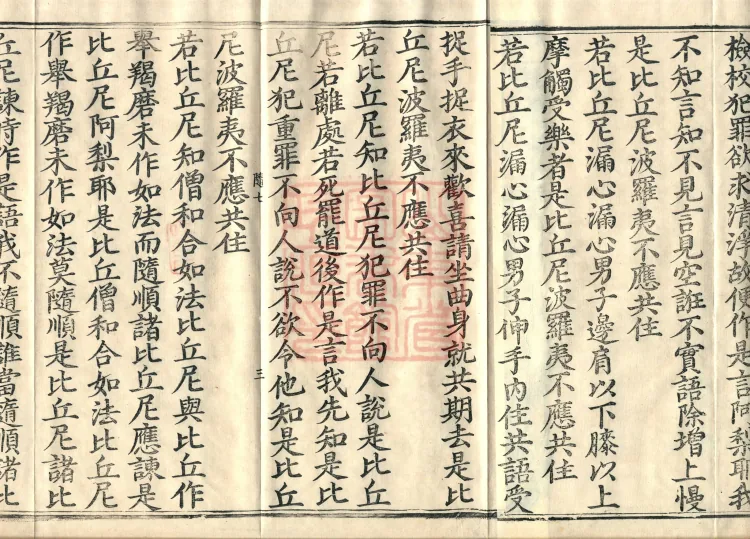 檢挍犯罪欲求清淨故便作是言阿梨耶我
不知言知不見言見空誑不實語除增上慢
是比丘尼波羅夷不應共住
若比丘尼漏心漏心男子邊肩以下膝以上
摩觸受樂者是比丘尼波羅夷不應共住
若比丘尼漏心漏心男子伸手內住共語受
捉手捉衣來歡喜請坐曲身就共期去是比
丘尼波羅夷不應共住
若比丘尼知比丘尼犯罪不向人說是比丘
尼若離處若死罷道後作是言我先知是比
丘尼犯重罪不向人說不欲令他知是比丘
隨七 三
尼波羅夷不應共住
若比丘尼知僧和合如法比丘尼與比丘作
舉羯磨未作如法而隨順諸比丘尼應諫是
比丘尼阿梨耶是比丘僧和合如法比丘尼
作舉羯磨未作如法莫隨順是比丘尼諸比
丘尼諫時作是語我不隨順誰當隨順諸比